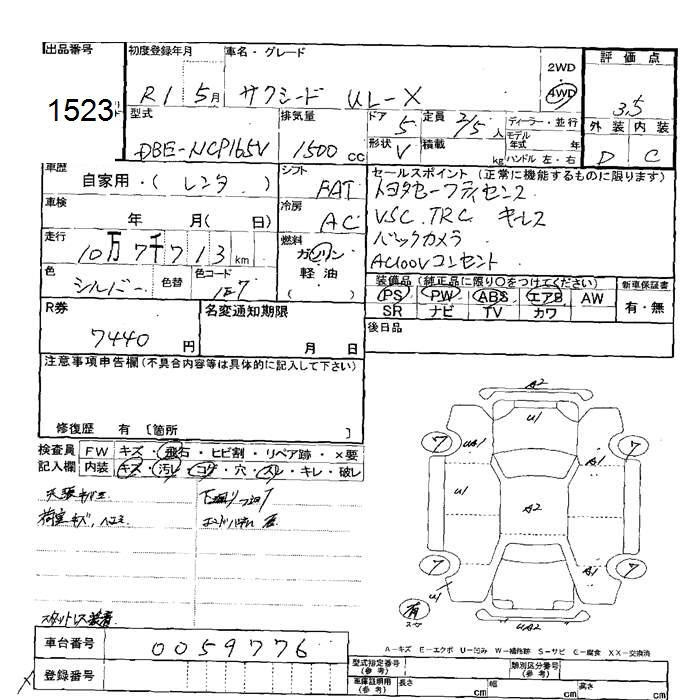 出品番号 初度登録年月 車名・グレード 評価点
1523 R1 5月 サクシード UL-X 2WD 4WD 3.5
型式 排気量 ドア 定員 ディーラー・並行 外装 内装
DBE-NCP165V 1500cc 5 2/5人 モデル年式 年 D C
形状 V 積載 kg ハンドル 左・右
車歴 自家用・(レンタ) シフト FAT セールスポイント (正常に機能するものに限ります)
トヨタセーフティセンス
車検 年 月(日) 冷房 AC VSC TRC キーレス
走行 10万7千713km 燃料 ガソリン バックカメラ
軽油 AC100Vコンセント
色 シルバー 色替 色コード 1E7 ( )
装備品 (純正品に限り○をつけてください) 新車保証書
PS PW ABS エアB AW 有・無
SR ナビ TV カワ
R券 7440円 名変通知期限 月 日
後日品
注意事項申告欄(不具合内容等は具体的に記入して下さい)
修復歴 有 [箇所 ]
検査員記入欄 FW キズ・飛石・ヒビ割・リペア跡・×要
内装 キズ・汚レ・コゲ・穴・スレ・キレ・破レ
下廻りサビ
荷室キズ、ハコミ
スタットレス装着
A2
U1
7 7
UA1 A1
U1
A2
7 7
U1 A1
有
スペア
UA2
A-キズ E-エクボ U-凹み W-補修跡 S-サビ C-腐食 XX-交換済
車台番号 0059776
登録番号
型式指定番号(参考) 類別区分番号(参考)
車庫証明用(参考) 長さ cm 幅 cm 高さ cm